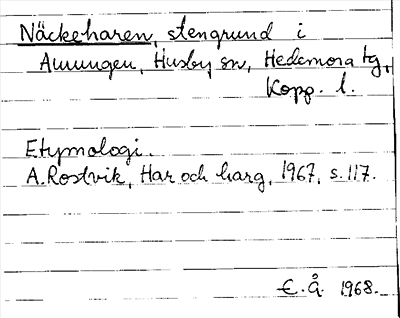 Näckeharen, stengrund i
Amungen, Husby sn, Hedemora tg,
Kopp. l.
Etymologi.
A. Rostvik, Har och harg, 1967, s. 117.
E. Å. 1968.